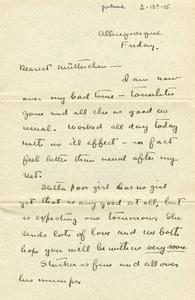 postmark 2-139-15
Albuquerque
Friday.
Dearest Mütterchen –
I am now
over my bad time – tonsilitis
gone and all else as good as
usual. Worked all day today
with no ill effect – in fact
feel better than usual after my
rest.
Stella poor girl has no girl
yet that is any good at all, but
is expecting one tomorrow. She
sends lots of love and we both
hope you will be with us very soon.
is fine and all over
his mumps.